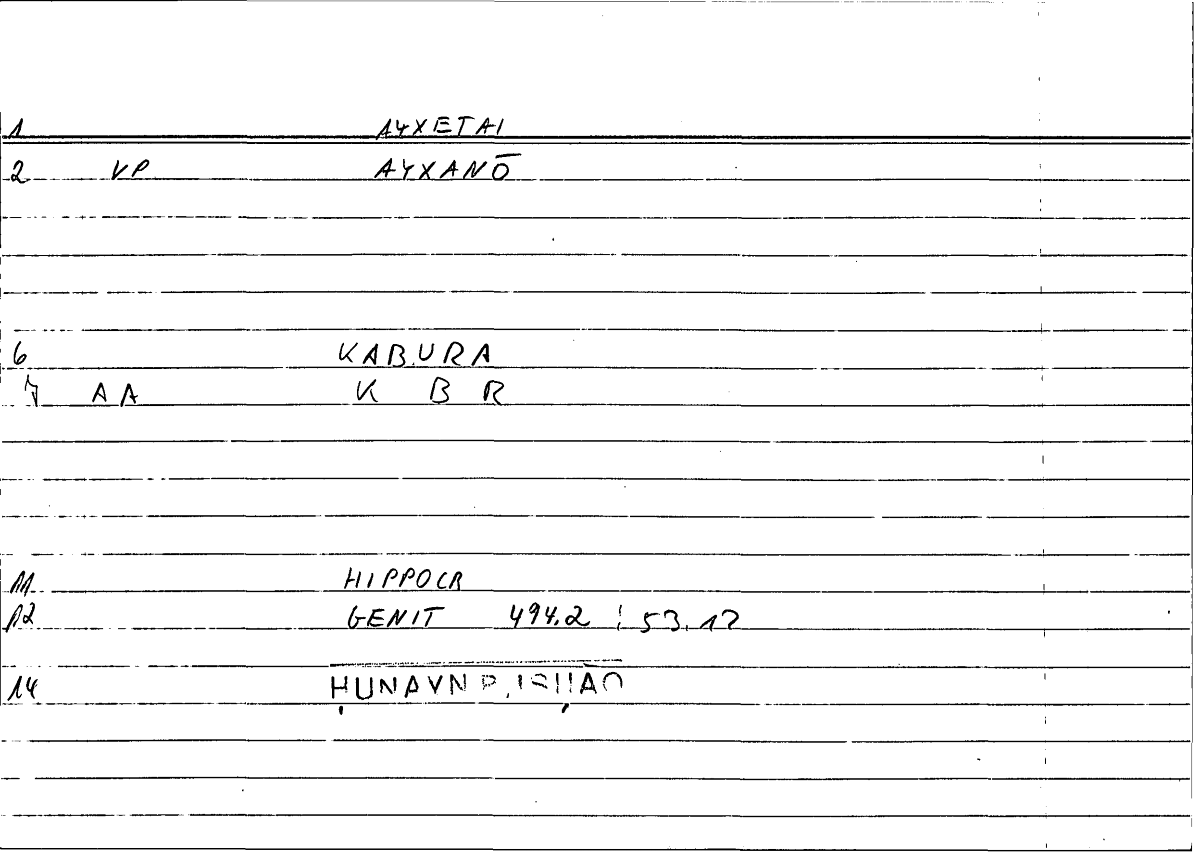 1 AYXETAI
2 VP AYXANŌ
6 KABURA
7 AA K B R
11 HIPPOCR
12 GENIT 494.2 ; 53.17
14 ḤUNAYN B. ISḤAQ